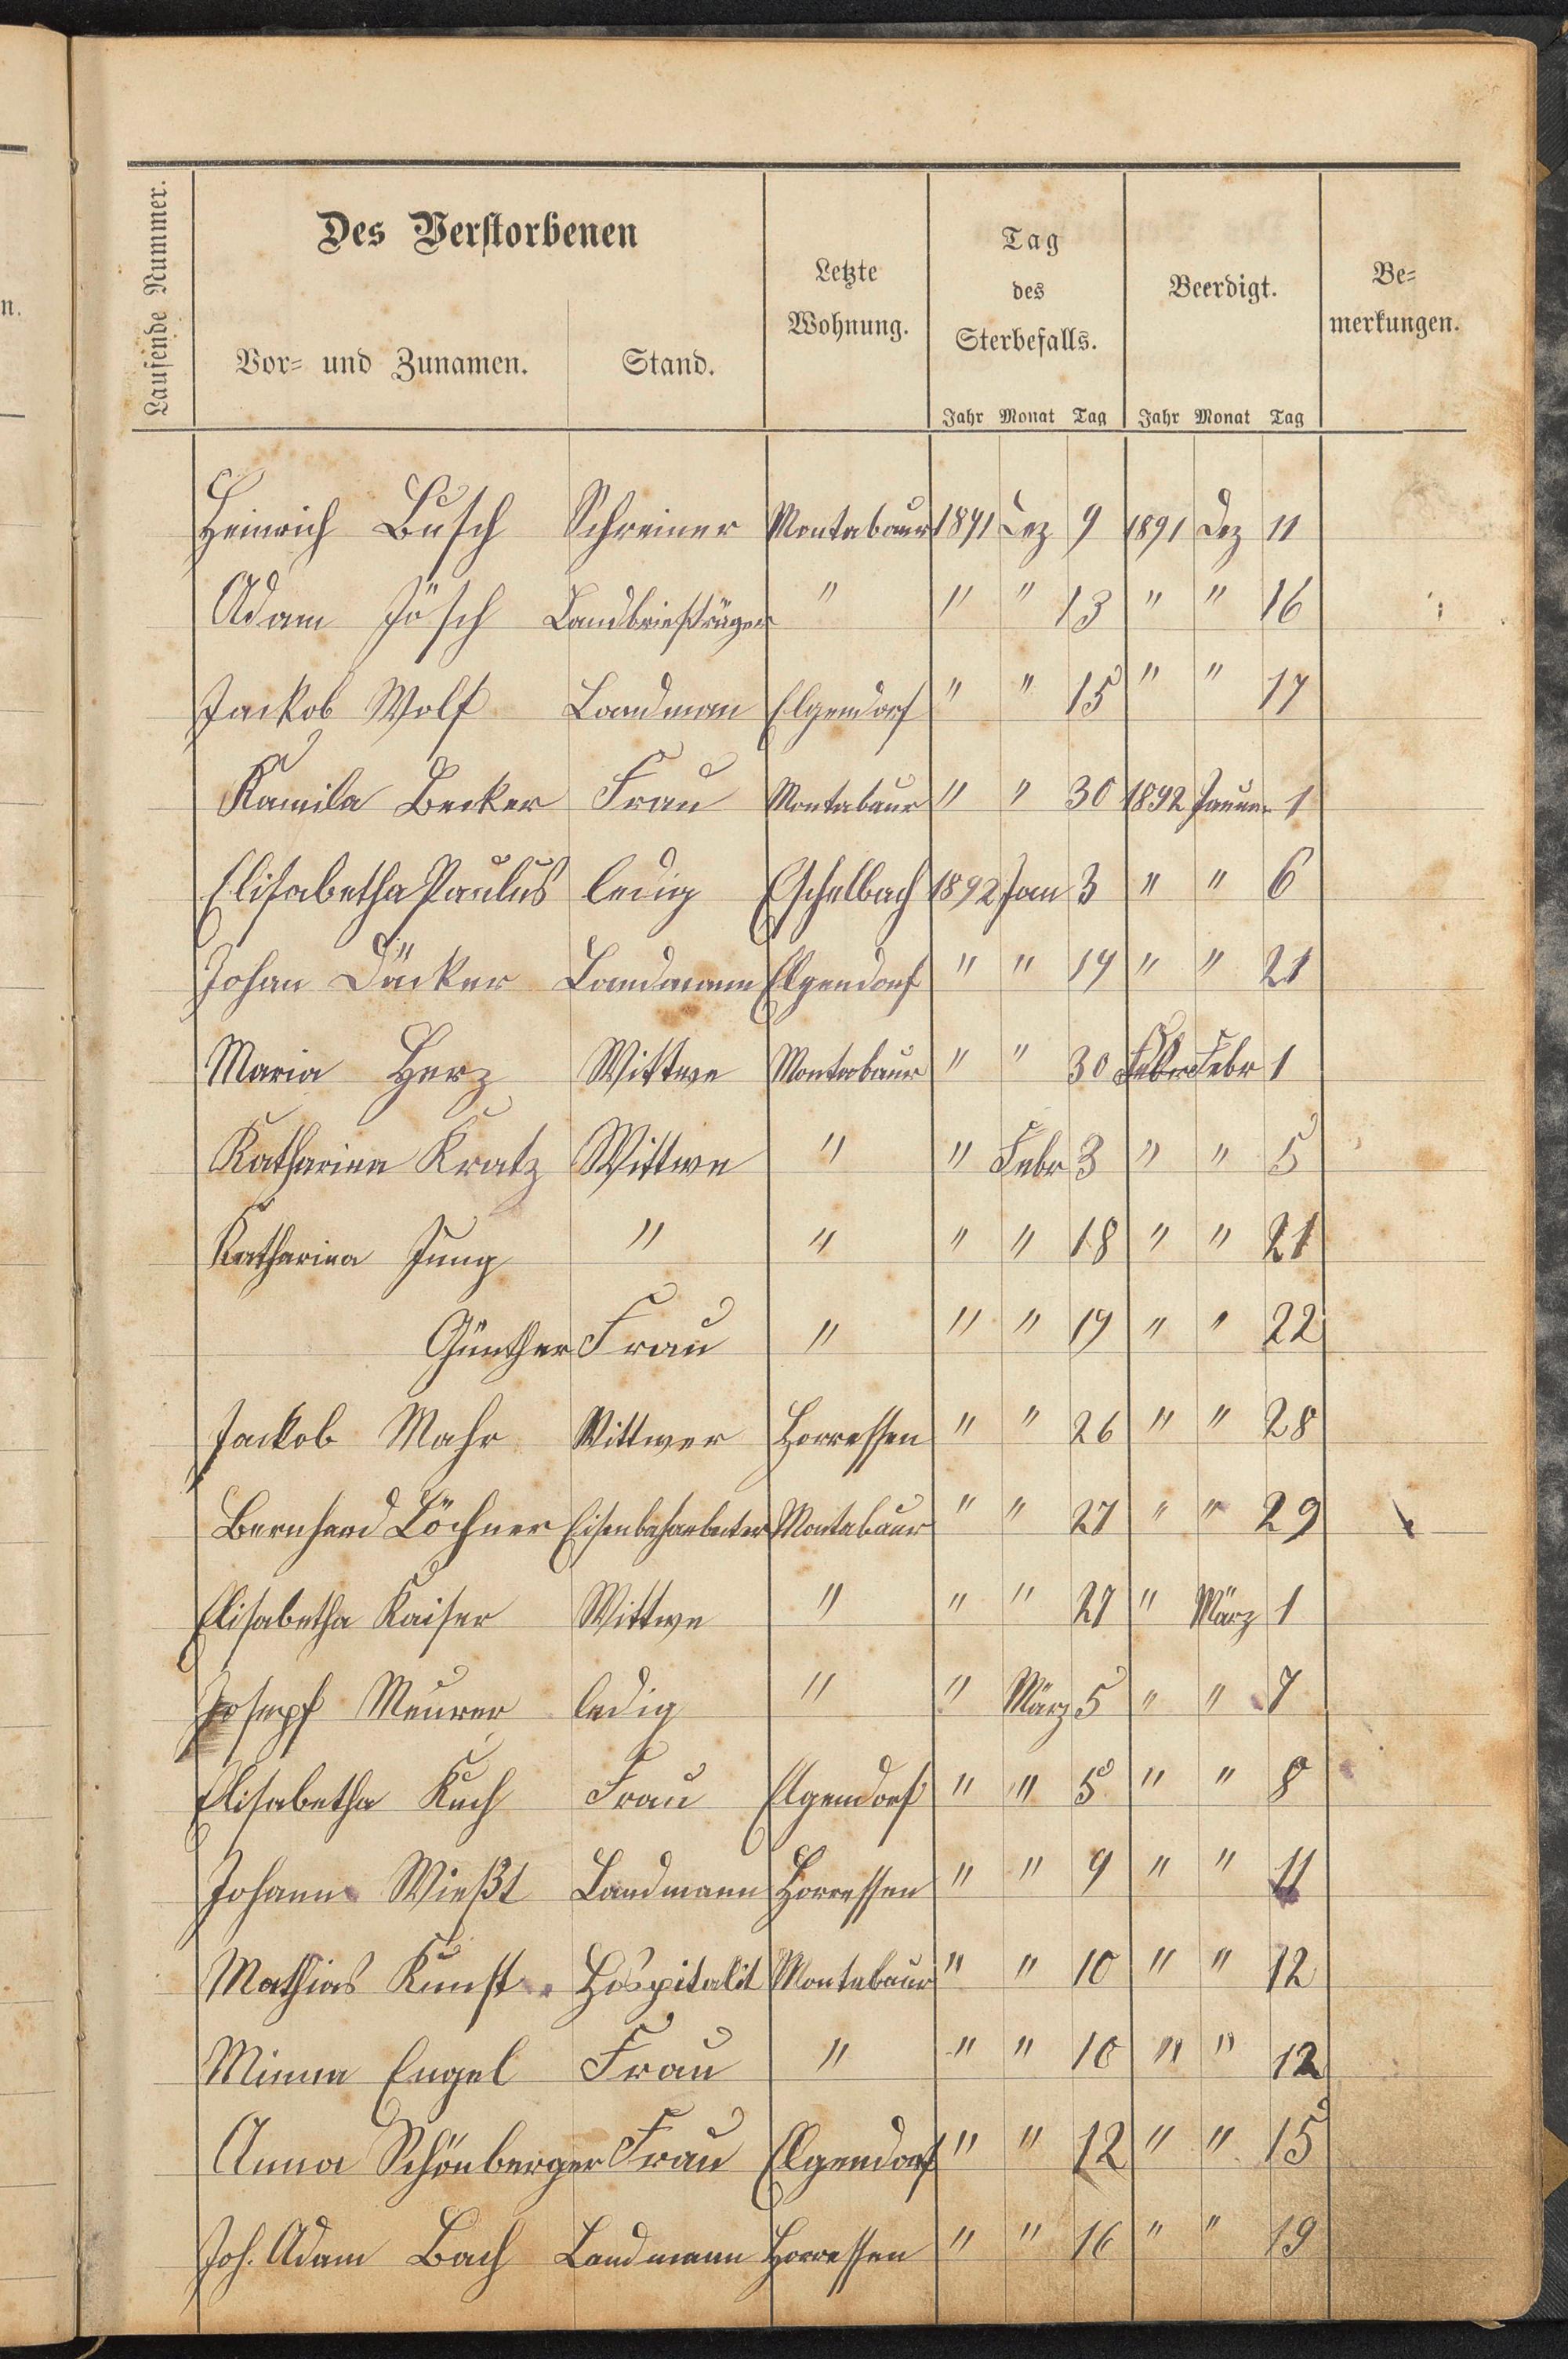 n.
Laufende Nummer.
Des Verstorbenen
Vor= und Zunamen.
Stand.
Letzte
Wohnung.
Tag
des
Sterbefalls.
Jahr Monat Tag
Beerdigt.
Jahr Monat Tag
Be=
merkungen.
Heinrich Busch Schreiner Montabaur 1891 Dez 9 1891 Dez 11
Adam Jösch Landbriefträger " " " 13 " " 16
Jackob Wolf Landman Elgendorf " " 15 " " 17
Kamila Becker Frau Montabaur " " 30 1892 Januar 1
Elisabetha Paulus ledig Eschelbach 1892 Jan 3 " " 6
Johan Däcker Landmann Elgendorf " " 19 " " 21
Maria Herz Wittwe Montabaur " " 30 Febr Febr 1
Katharina Kratz Wittwe " " Febr 3 " " 5
Katharina Jung " " " " 18 " " 21
Günther Frau " " " 19 " " 22
Jackob Mahr Wittwer Horressen " " 26 " " 28
Bernhard Löchner Eisenbaharbeiter Montabaur " " 27 " " 29
Elisabetha Kaiser Wittwe " " " 27 " März 1
Josepf Meurer ledig " " März 5 " " 7
Elisabetha Kuch Frau Elgendorf " " 5 " " 8
Johann Wießt Landmann Horressen " " 9 " " 11
Mathias Kunst Hospitalit Montabaur " " 10 " " 12
Minna Engel Frau " " " 10 " " 12
Anna Schönberger Frau Elgendorf " " 12 " " 15
Joh. Adam Bach Landmann Horressen " " 16 " " 19